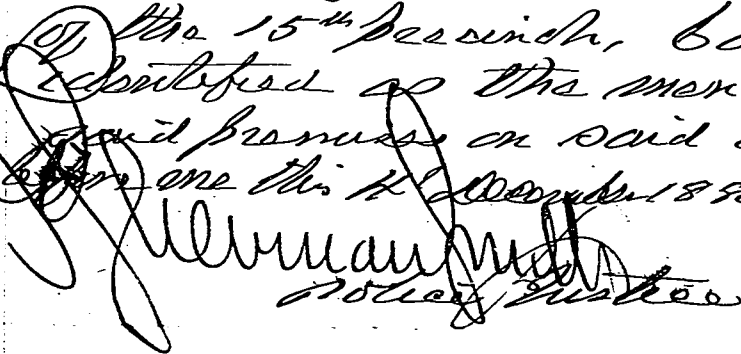 of the 15th Precinct,
identified as the man
said premises on said
before me this 4th December 188
Solon B Smith
Police Justice